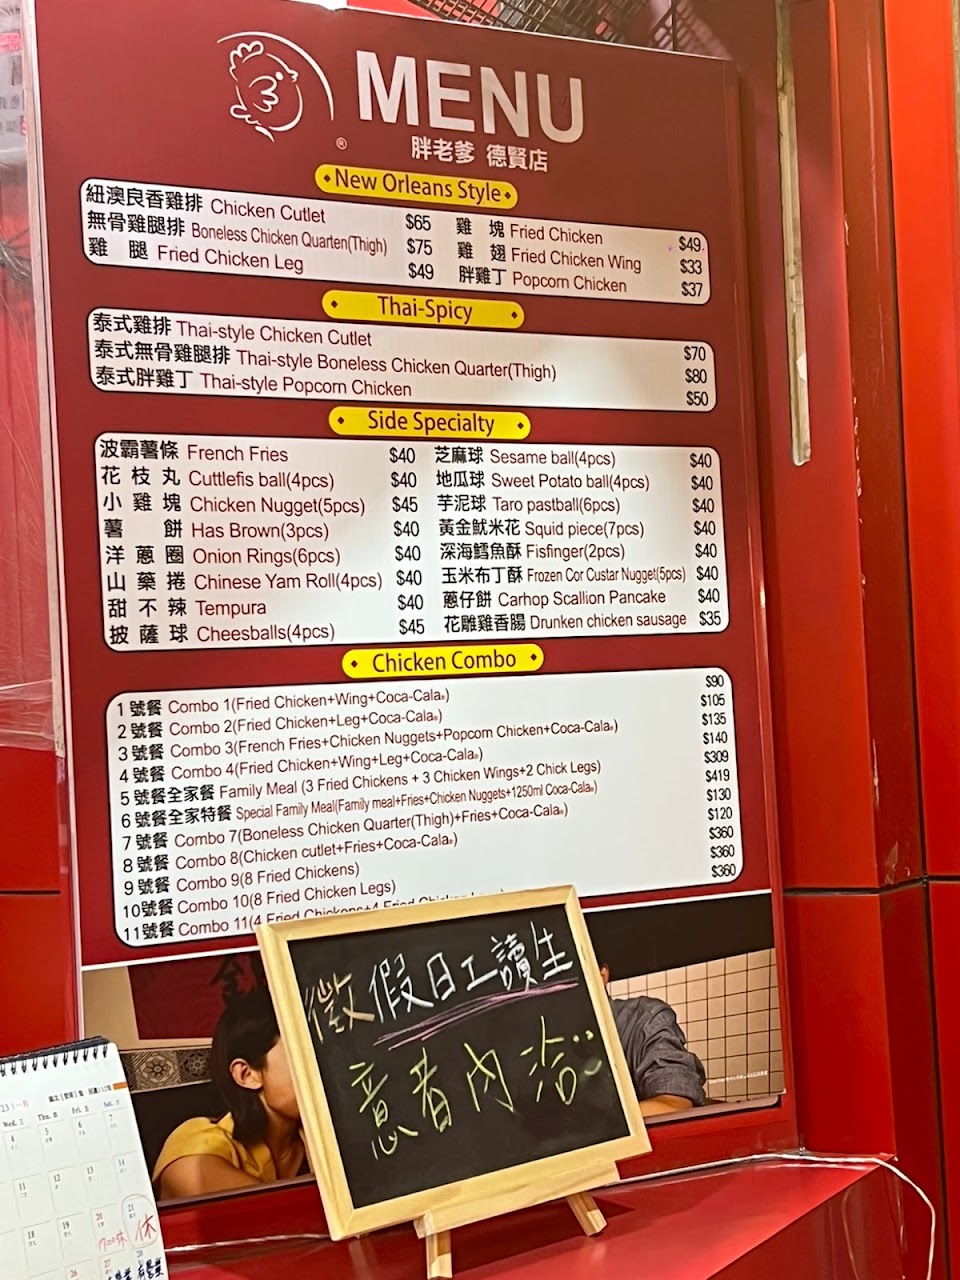 MENU
®
胖老爹 德賢店
New Orleans Style
紐澳良香雞排 Chicken Cutlet $65
無骨雞腿排 Boneless Chicken Quarten(Thigh) $75
雞 腿 Fried Chicken Leg $49
雞 塊 Fried Chicken $49
雞 翅 Fried Chicken Wing $33
胖雞丁 Popcorn Chicken $37
Thai-Spicy
泰式雞排 Thai-style Chicken Cutlet $70
泰式無骨雞腿排 Thai-style Boneless Chicken Quarter(Thigh) $80
泰式胖雞丁 Thai-style Popcorn Chicken $50
Side Specialty
波霸薯條 French Fries $40
花枝丸 Cuttlefis ball(4pcs) $40
小雞塊 Chicken Nugget(5pcs) $45
薯餅 Has Brown(3pcs) $40
洋蔥圈 Onion Rings(6pcs) $40
山藥捲 Chinese Yam Roll(4pcs) $40
甜不辣 Tempura $40
披薩球 Cheesballs(4pcs) $45
芝麻球 Sesame ball(4pcs) $40
地瓜球 Sweet Potato ball(4pcs) $40
芋泥球 Taro pastball(6pcs) $40
黃金魷米花 Squid piece(7pcs) $40
深海鱈魚酥 Fisfinger(2pcs) $40
玉米布丁酥 Frozen Cor Custar Nugget(5pcs) $40
蔥仔餅 Carhop Scallion Pancake $40
花雕雞香腸 Drunken chicken sausage $35
Chicken Combo
1 號餐 Combo 1(Fried Chicken+Wing+Coca-Cala®) $90
2 號餐 Combo 2(Fried Chicken+Leg+Coca-Cala®) $105
3 號餐 Combo 3(French Fries+Chicken Nuggets+Popcorn Chicken+Coca-Cala®) $135
4 號餐 Combo 4(Fried Chicken+Wing+Leg+Coca-Cala®) $140
5 號餐全家餐 Family Meal (3 Fried Chickens + 3 Chicken Wings+2 Chick Legs) $309
6 號餐全家特餐 Special Family Meal(Family meal+Fries+Chicken Nuggets+1250ml Coca-Cala®) $419
7 號餐 Combo 7(Boneless Chicken Quarter(Thigh)+Fries+Coca-Cala®) $130
8 號餐 Combo 8(Chicken cutlet+Fries+Coca-Cala®) $120
9 號餐 Combo 9(8 Fried Chickens) $360
10號餐 Combo 10(8 Fried Chicken Legs) $360
11號餐 Combo 11(4 Fried Chickens+4 Fried Chicken $360
徵假日工讀生
意者內洽
Wed. 三 Thu. 四 Fri. 五 Sat. 六
4 5 6 7
11 12 13 14
18 19 20 21
休
26 27 28